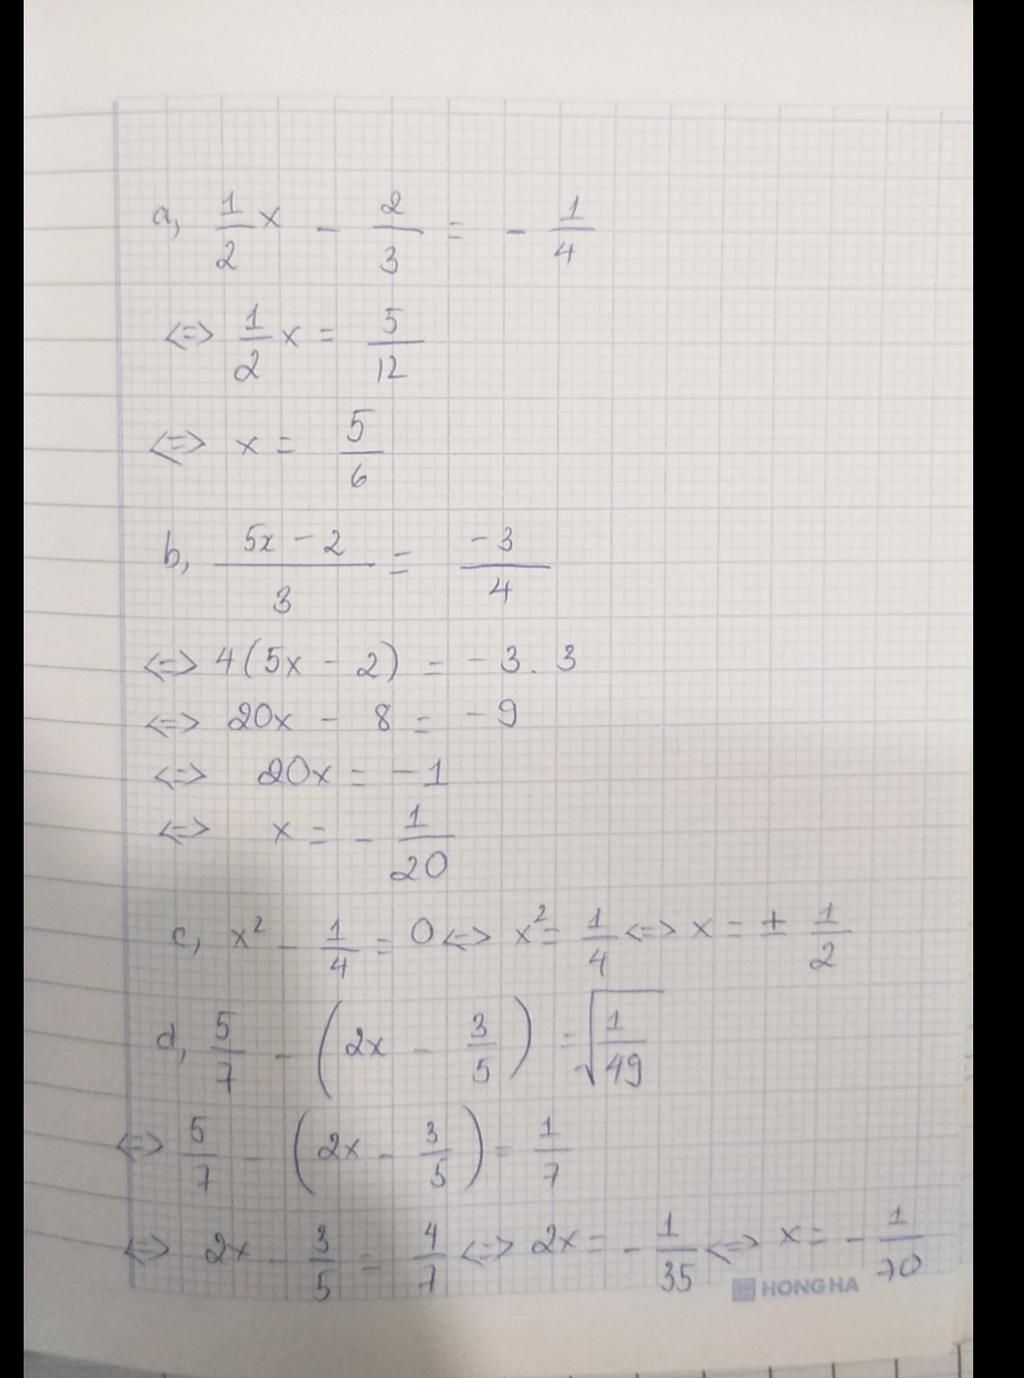 a, 1/2 x - 2/3 = - 1/4
<=> 1/2 x = 5/12
<=> x = 5/6
b, (5x - 2)/3 = -3/4
<=> 4(5x - 2) = -3. 3
<=> 20x - 8 = -9
<=> 20x = -1
<=> x = - 1/20
c, x² - 1/4 = 0 <=> x² = 1/4 <=> x = ± 1/2
d, 5/7 - (2x - 3/5) = √(1/49)
<=> 5/7 - (2x - 3/5) = 1/7
<=> 2x - 3/5 = 4/7 <=> 2x = - 1/35 <=> x = - 1/70
HONG HA